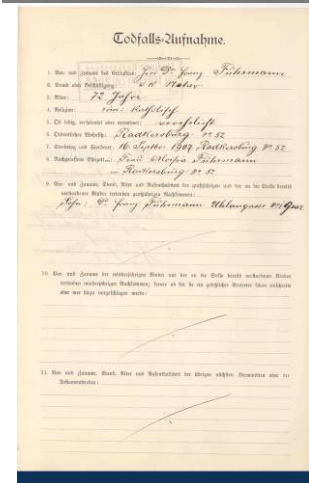 Todfalls-Aufnahme.
1. Vor- und Zuname des Verstorbenen: Herr Dr. Franz Fuhrmann
2. Stand oder Beschäftigung: k.k. Notar
3. Alter: 72 Jahre
4. Religion: röm. katholisch
5. Ob ledig, verheiratet oder verwitwet: verehelicht
6. Ordentlicher Wohnsitz: Radkersburg Nr. 52
7. Sterbetag und Sterbeort: 16. Septber 1907, Radkersburg Nr. 52
8. Nachgelassener Ehegatte: Frau Fuhrmann
in Radkersburg Nr. 52
9. Vor- und Zuname, Stand, Alter und Aufenthaltsort der großjährigen und der an die Stelle bereits
verstorbener Kinder tretenden großjährigen Nachkommen:
Sohn: Dr. Franz Fuhrmann Graz
10. Vor- und Zuname der minderjährigen Kinder und der an die Stelle bereits verstorbener Kinder
tretenden minderjährigen Nachkommen; ferner ob für sie ein gesetzlicher Vertreter schon einschreitet
oder wer hiezu vorgeschlagen werde:
11. Vor- und Zuname, Stand, Alter und Aufenthaltsort der übrigen nächsten Verwandten oder der
Testamentserben: